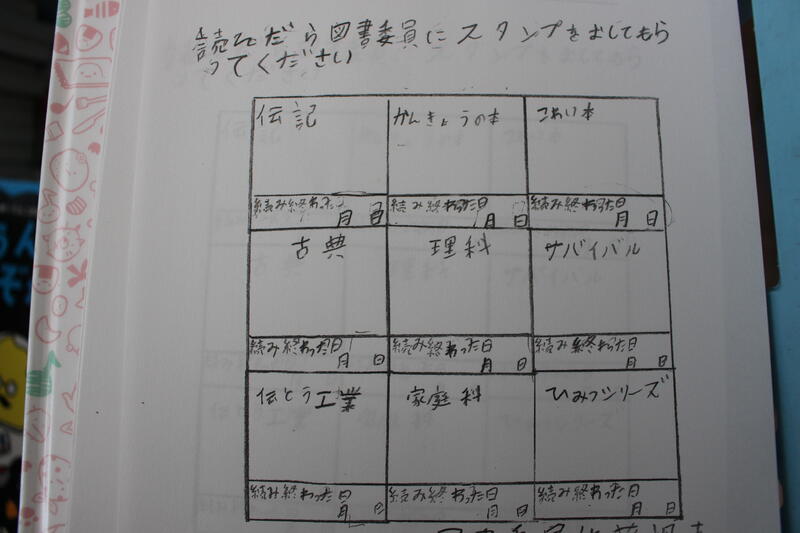 読んだら図書委員にスタンプをおしてもら
ってください
伝記 かんきょうの本 こわい本
読み終わった日 読み終わった日 読み終わった日
月 日 月 日 月 日
古典 理科 サバイバル
読み終わった日 読み終わった日 読み終わった日
月 日 月 日 月 日
伝とう工業 家庭科 ひみつシリーズ
読み終わった日 読み終わった日 読み終わった日
月 日 月 日 月 日